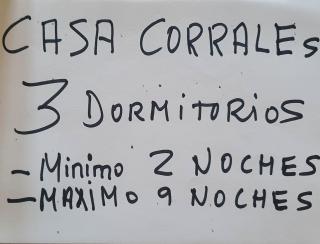 CASA CORRALEs
3 DORMITORIOS
- Minimo 2 NOCHES
- MAXIMO 9 NOCHES